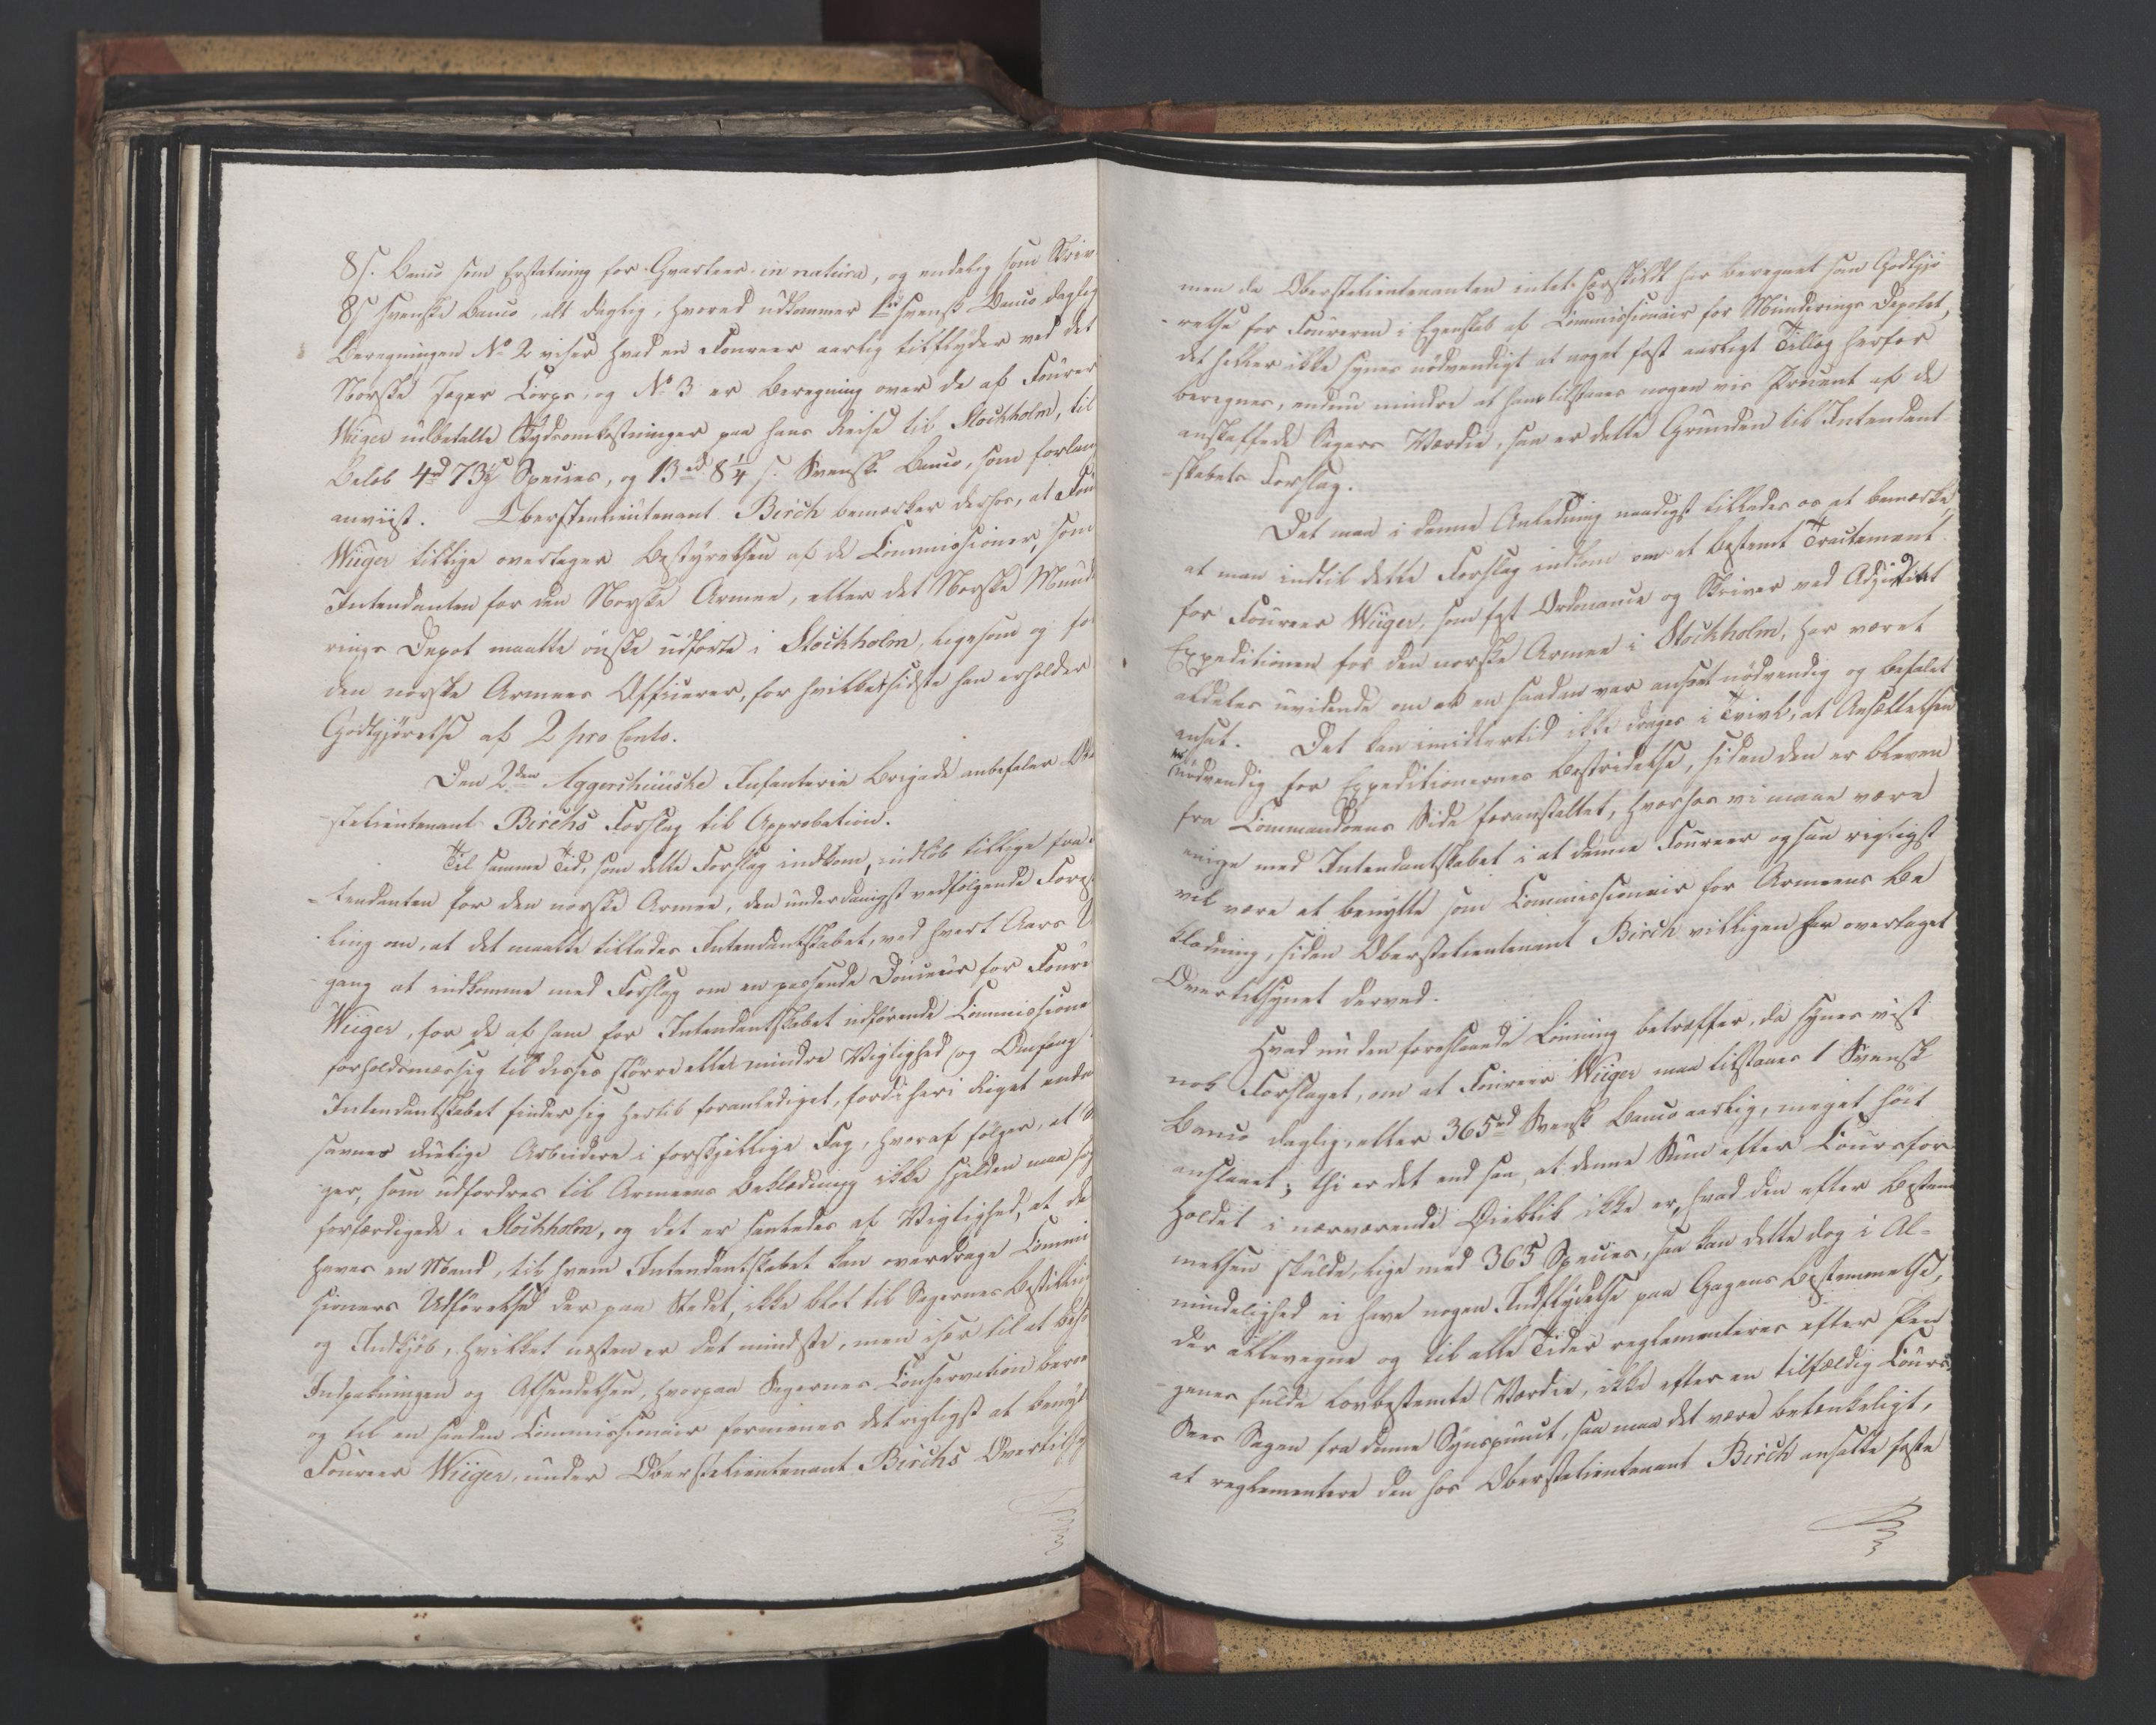 8 s. Banco som Erstatning for Qvarteer in natura, og endelig som Skriv
8 s svenske Banco, alt daglig, hvorved udkommer 1 rd svensk Banco daglig
Beregningen No 2 viser hvad en Foureer aarlig tilflyder ved det
Norske Jæger Corps, og No 3 er Beregning over de af Fourer
Wiiger udbetalte Skydsomkostninger paa hans Reise til Stockholm, til
Beløb 4 rd 73 s Species, og 13 rd 8 1/4 s. Svensk Banco, som forlan
anviist. Oberstlieutenant Birch bemærker derhos, at Fou
Wiiger tillige overtager Bestyrelsen af de Commissioner, som
Intendanten for den Norske Armee, eller det Norske Munde
rings Depot maatte ønske udførte i Stockholm, ligesom og fo
den norske Armees Officerer, for hvilket sidste han erholder
Godtgjørelse af 2 pro Cento.
Den 2den Aggershuuske Infanterie Brigade anbefaler Obe
stelieutenant Birchs Forslag til Approbation.
Til samme Tid, som dette Forslag indkom, indløb tillige fra
tendanten for den norske Armee, den underdanigst vedfølgende Forest
ling om, at det maatte tillades Intendantskabet, ved hvert Aars U
gang at indkomme med Forslag om en passende Douceur for Foure
Wiiger, for de af ham for Intendantskabet udførende Commissione
forholdsmæssig til disses større eller mindre Vigtighed og Omfang
Intendantskabet finder sig hertil foranlediget, fordi her i Riget endnu
savnes duelige Arbeidere i forskjellige Fag, hvoraf følger, at
ger, som udfordres til Armeens Beklædning ikke sjelden maa
forfærdigede i Stockholm, og det er saaledes af Vigtighed, at de
haves en Mand, til hvem Intendantskabet kan overdrage Commi
sioners Udførelse der paa Stedet, ikke blot til Sagernes Bestilling
og Indkjøb, hvilket næsten er det mindste, men især til at
Indpakningen og Afsendelsen, hvorpaa Sagernes Conservation beroe
og til en saadan Commissionair formenes det rigtigst at benyt
Foureer Wiiger, under Oberstelieutenant Birchs Overtilsy
men da Oberstelieutenanten intet særskildt har beregnet som Godtgjø
relse for Foureren i Egenskab af Commissionair for Munderings Depotet,
det heller ikke synes nødvendigt at noget fast aarligt Tillæg herfor
beregnes, endnu mindre at ham tilstaaes nogen vis Procent af de
anskaffede Sagers Værdie, saa er dette Grunden til Intendant
skabets Forslag.
Det maa i denne Anledning naadigst tillades os at bemærke,
at man indtil dette Forslag indkom om et bestemt Tractament
for Foureer Wiiger, som fast Ordonance og Skriver ved Adjutant
Expeditionen for den norske Armee i Stockholm, har været
aldeles uvidende om at en saadan var anseet nødvendig og befalet
ansat. Det kan imidlertid ikke drages i Tvivl, at Ansættelsen
nødvendig for Expeditionernes Bestridelse, siden den er bleven
fra Commandoens Side foranstaltet, hvorhos vi maae være
enige med Intendantskabet i at denne Foureer ogsaa rigtigst
vil være at benytte som Commissionair for Armeens Be
klædning, siden Oberstelieutenant Birch villigen har overtaget
Overtilsynet derved.
Hvad nu den foreslaaede Lønning betræffer, da synes vist
nok Forslaget, om at Foureer Wiiger maa tilstaaes 1 Svensk
Banco daglig, eller 365 rd Svensk Banco aarlig, meget høit
anslaaet; thi er det end saa, at denne Sum efter Coursfor
holdet i nærværende Øieblik ikke er, hvad den efter Bestem
melsen skulde, lige med 365 Species, saa kan dette dog i Al-
mindelighed ei have nogen Indflydelse paa Gagens Bestemmelse,
der allevegne og til alle Tider reglementeres efter Pen
genes fulde lovbestemte Værdie, ikke efter en tilfældig Cours,
Sees Sagen fra denne Synspunct, saa maa det være betænkeligt,
at reglementere den hos Oberstelieutenant Birch ansatte faste